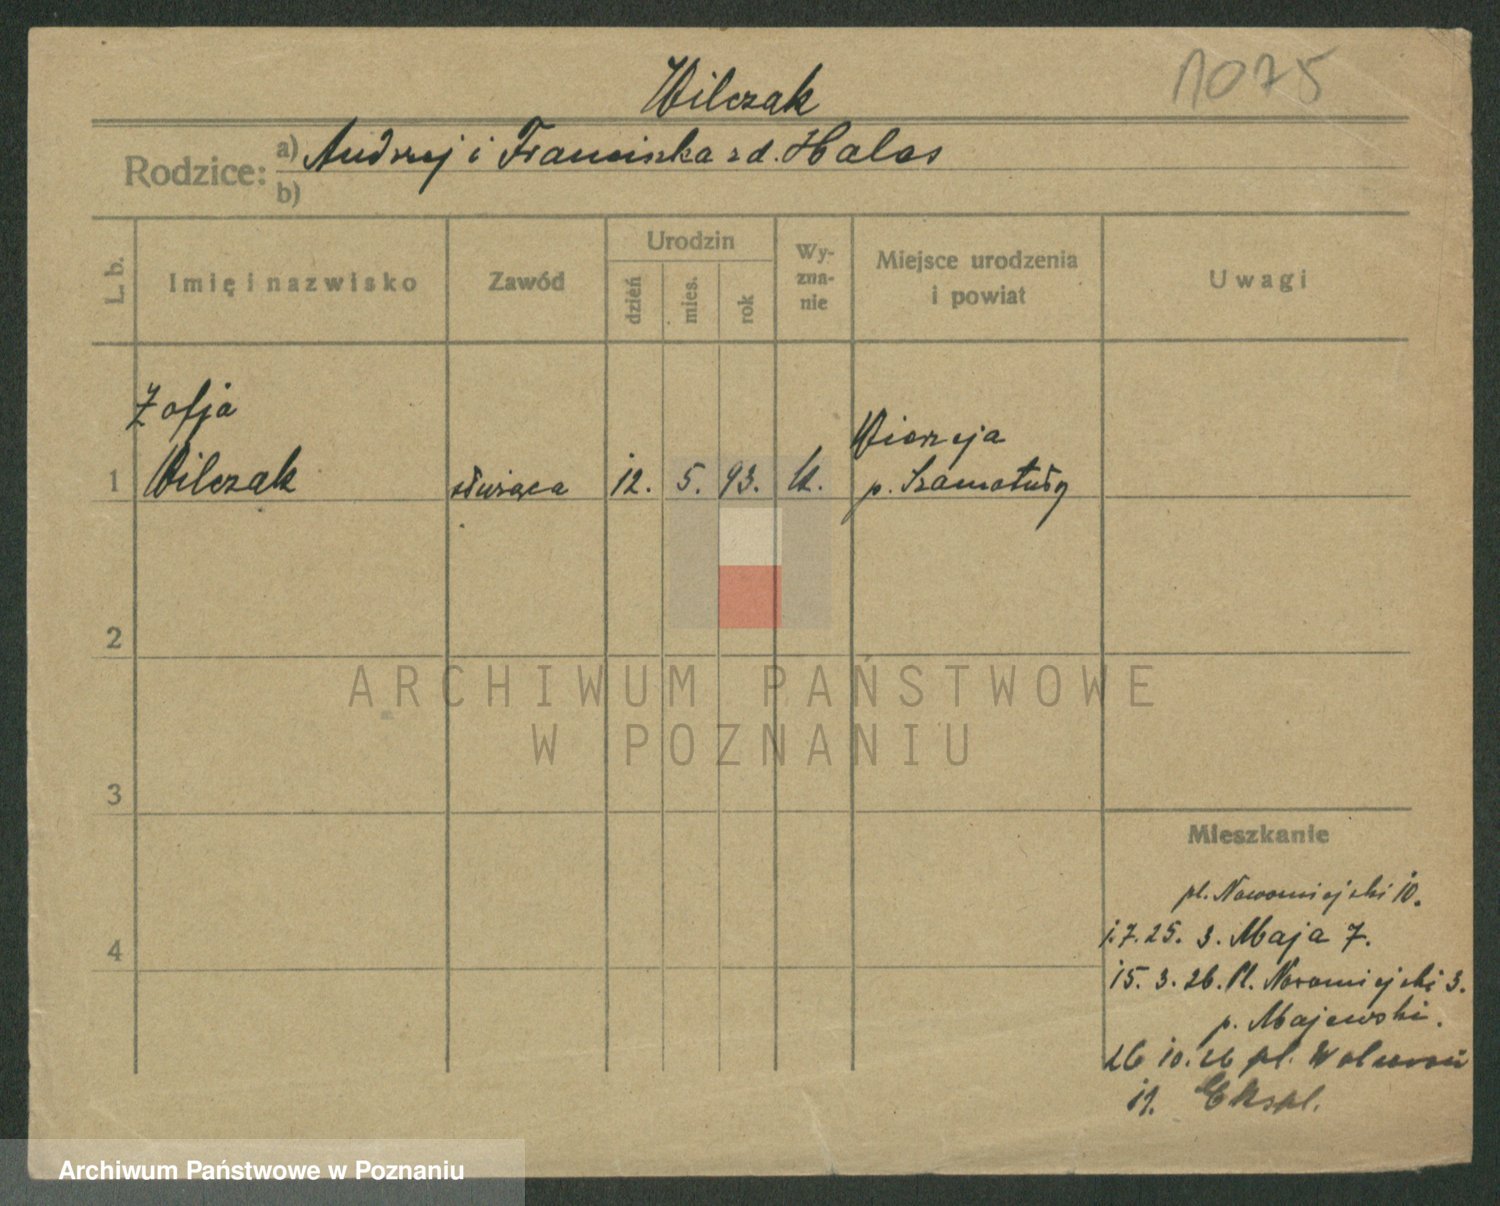 1075
Wilczak
Rodzice: a) Andrzej i Franciszka zd. Halas
b)
L. b.
Imię i nazwisko
Zawód
Urodzin
dzień
mies.
rok
Wy-
zna-
nie
Miejsce urodzenia
i powiat
Uwagi
Zofja
1 Wilczak służąca 12. 5. 93. k. Wierzeja
p. Szamotuły
2
ARCHIWUM PAŃSTWOWE
W POZNANIU
3
Mieszkanie
pl. Nowomiejski 10.
4
1.7.25. 3. Maja 7.
15. 3. 26. Pl. Nowomiejski 3.
p. Majewski.
26 10. 26 pl. Wolności
Ekspl.
Archiwum Państwowe w Poznaniu